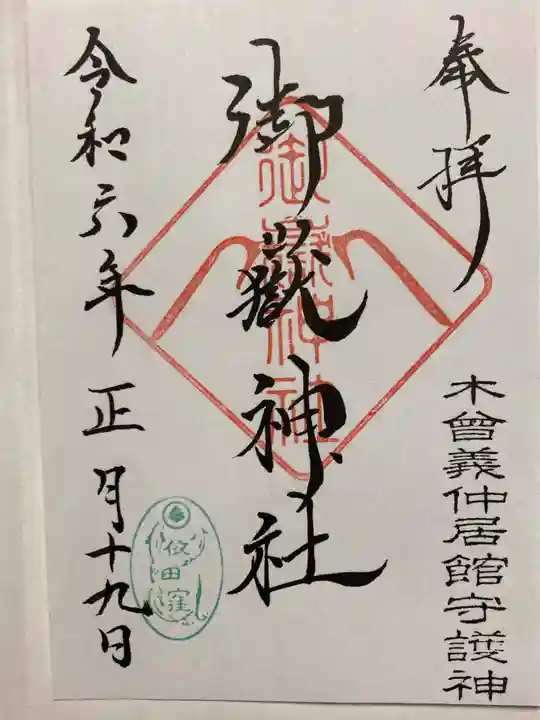 奉拝
木曽義仲居館守護神
御嶽神社
御嶽神社
令和六年正月十九日
依田窪